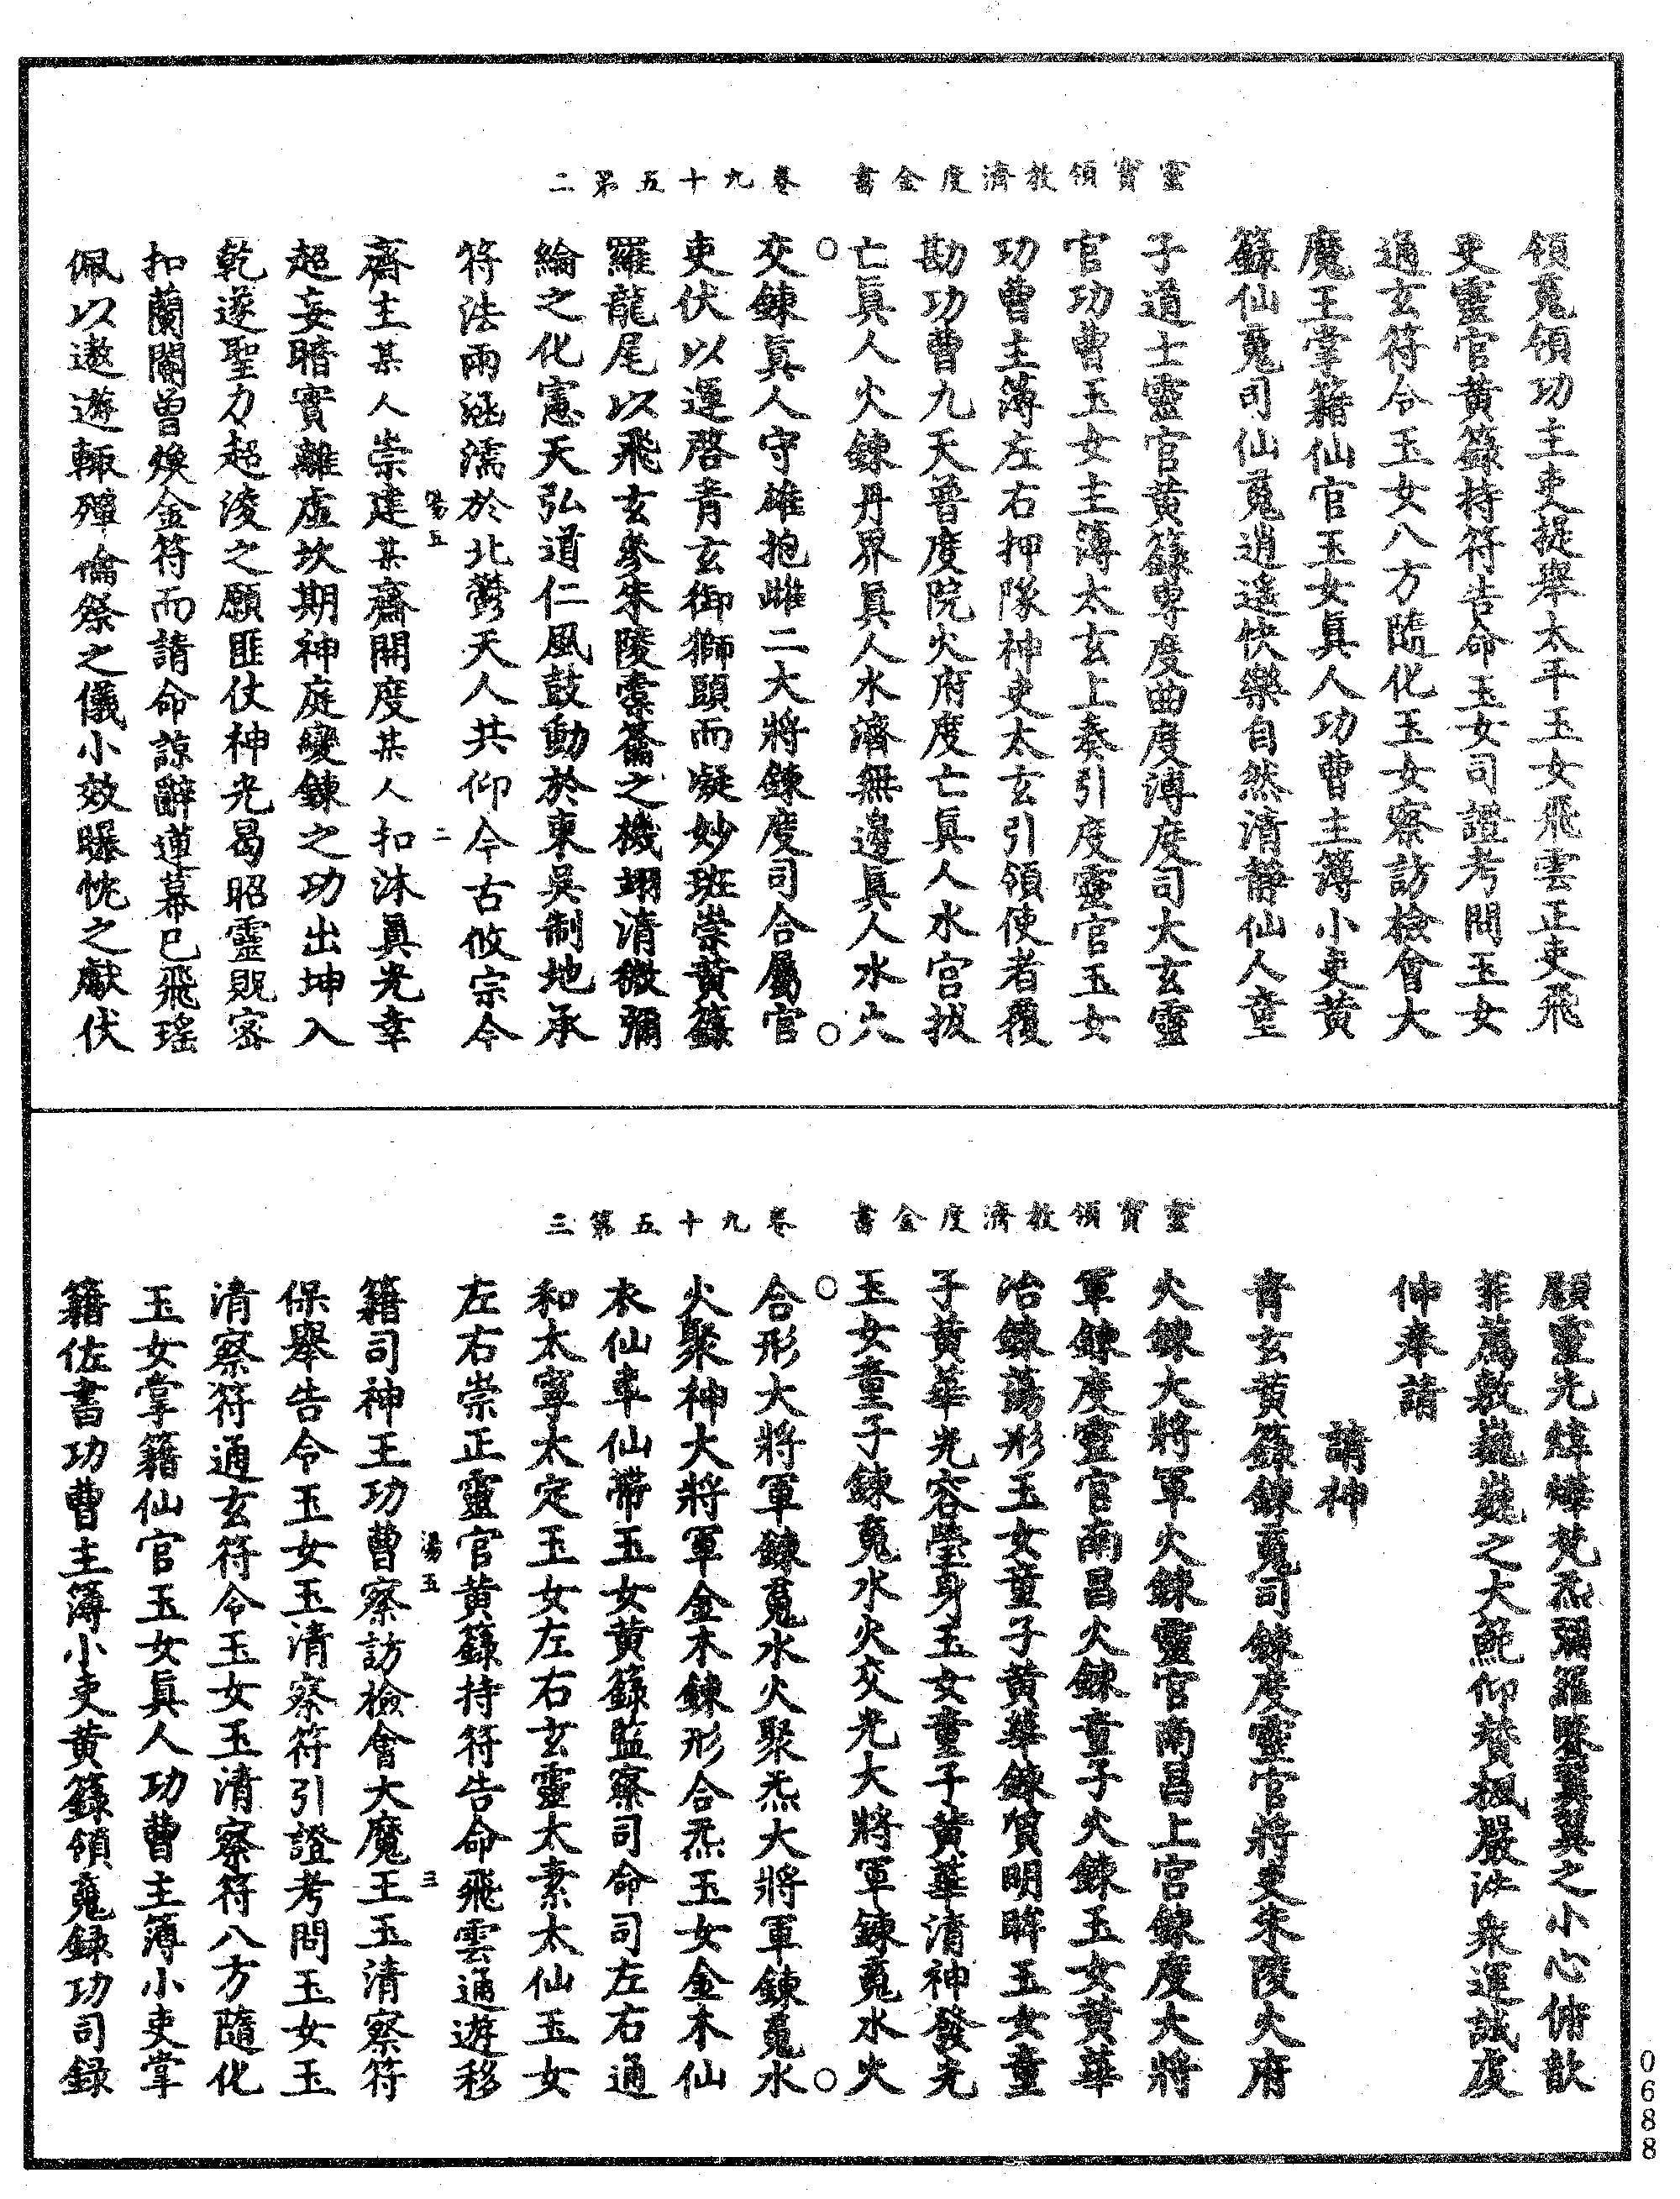 靈寶領教濟度金書 卷九十五第二
領䰟領功主吏提舉太平玉女飛雲正吏飛
吏靈官黄籙持符告命玉女司證考問玉女
通玄符令玉女八方隨化玉女察訪檢會大
魔王掌籍仙官玉女真人功曹主簿小吏黄
籙仙䰟司仙䰟逍遙快樂自然清靜仙人童
子道士靈官黄籙専度曲度溥度司太玄靈
官功曹玉女主簿太玄上奏引度靈官玉女
功曹主簿左右押隊神吏太玄引領使者覆
勘功曹九天普度院火府度亡真人水宫拔
亡真人火鍊丹界真人水濟無邊真人水火
交鍊真人守雄抱雌二大將鍊度司合屬官
吏伏以運啓青玄御獅頭而凝妙班崇黄籙
羅龍尾以飛玄參朱陵橐籥之機翊清微彌
綸之化憲天弘道仁風鼓動於東吳制地承
符法雨涵濡於北酆天人共仰今古攸宗今
湯五 二
齋主某人崇建某齋開度某人扣沐真光幸
超妄暗實離虛坎期神庭變鍊之功出坤入
乾遂聖力超淩之願匪仗神光曷昭靈貺寄
扣蘭闍曽煥金符而請命諒辭蓮幕已飛瑤
佩以遨遊輙殫倫祭之儀小效曝忱之獻伏
靈寶領教濟度金書 卷九十五第三
願重光煒燁梵炁彌羅鑒翼翼之小心俯歆
菲薦敷巍巍之大範仰賛楓嚴法衆運誠虔
伸奉請
請神
青玄黄籙鍊䰟司鍊度靈官將吏朱陵火府
火鍊大將軍火鍊靈官南昌上宫鍊度大將
軍鍊度靈官南昌火鍊童子火鍊玉女黄華
冶鍊蕩形玉女童子黄華鍊質明眸玉女童
子黄華光容瑩身玉女童子黄華清神發光
玉女童子鍊䰟水火交光大將軍鍊䰟水火
合形大將軍鍊䰟水火聚炁大將軍鍊䰟水
火聚神大將軍金木鍊形合炁玉女金木仙
衣仙車仙帶玉女黄籙監察司命司左右通
和太寧太定玉女左右玄靈太素太仙玉女
左右崇正靈官黄籙持符告命飛雲通遊移
湯五 三
籍司神王功曹察訪檢會大魔王玉清察符
保舉告令玉女玉清察符引證考問玉女玉
清察符通玄符令玉女玉清察符八方隨化
玉女掌籍仙官玉女真人功曹主簿小吏掌
籍佐書功曹主簿小吏黄籙領䰟録功司録
0688